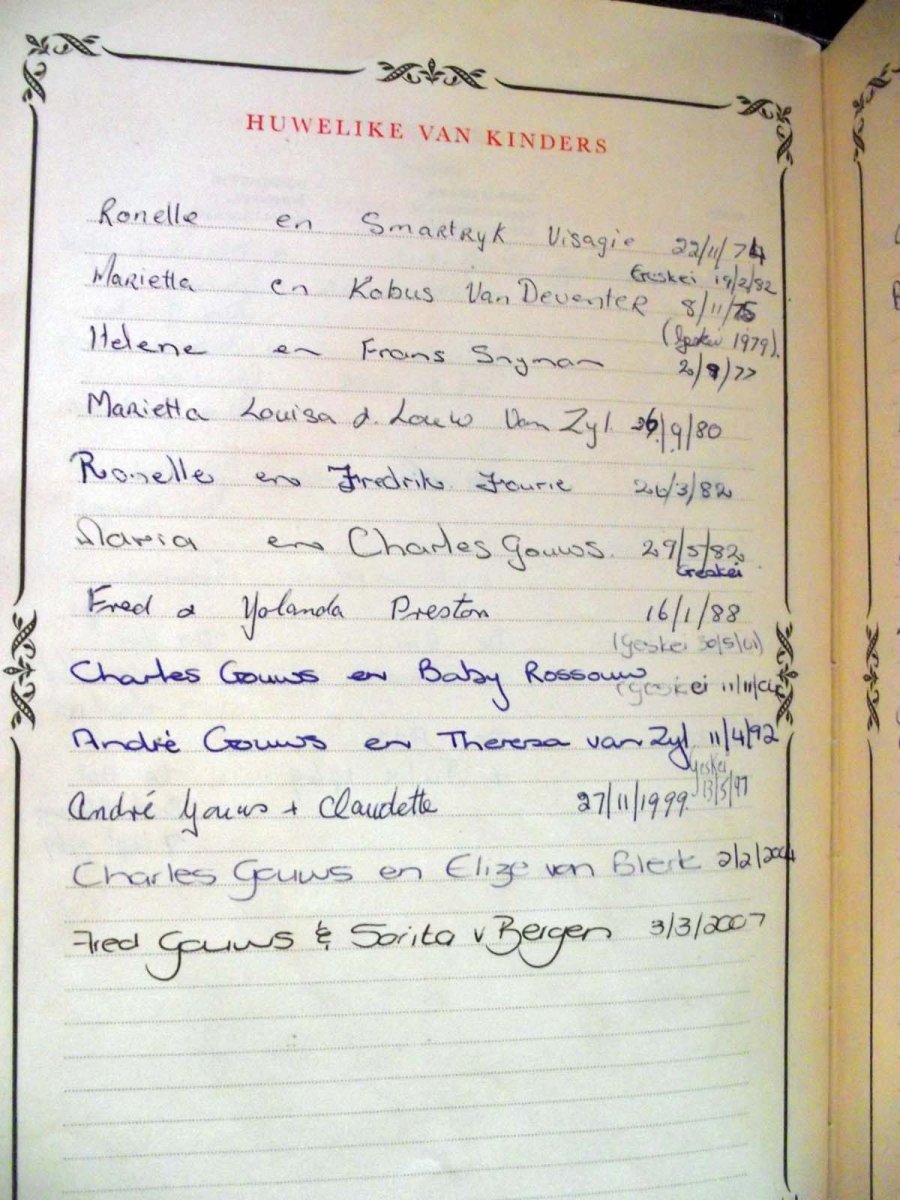 HUWELIKE VAN KINDERS
Ronelle en Smartryk Visagie 22/11/74
Geskei 19/2/82
Marietta en Kobus Van Deventer 8/11/75
(Geskei 1979).
Helene en Frans Snyman 2/9/77
Marietta Louisa & Louw Van Zyl 26/9/80
Ronelle en Fredrik Fourie 26/3/82
Maria en Charles Gouws. 29/5/82
Geskei
Fred & Yolanda Preston 16/1/88
(geskei 30/5/01)
Charles Gouws en Baby Rossouw
(geskei
André Gouws en Theresa van Zyl 11/4/92
Geskei
13/5/97
André Gouws + Claudette 27/11/1999
Charles Gouws en Elize van Blerk 2/2/2004
Fred Gouws & Sarita v Bergen 3/3/2007